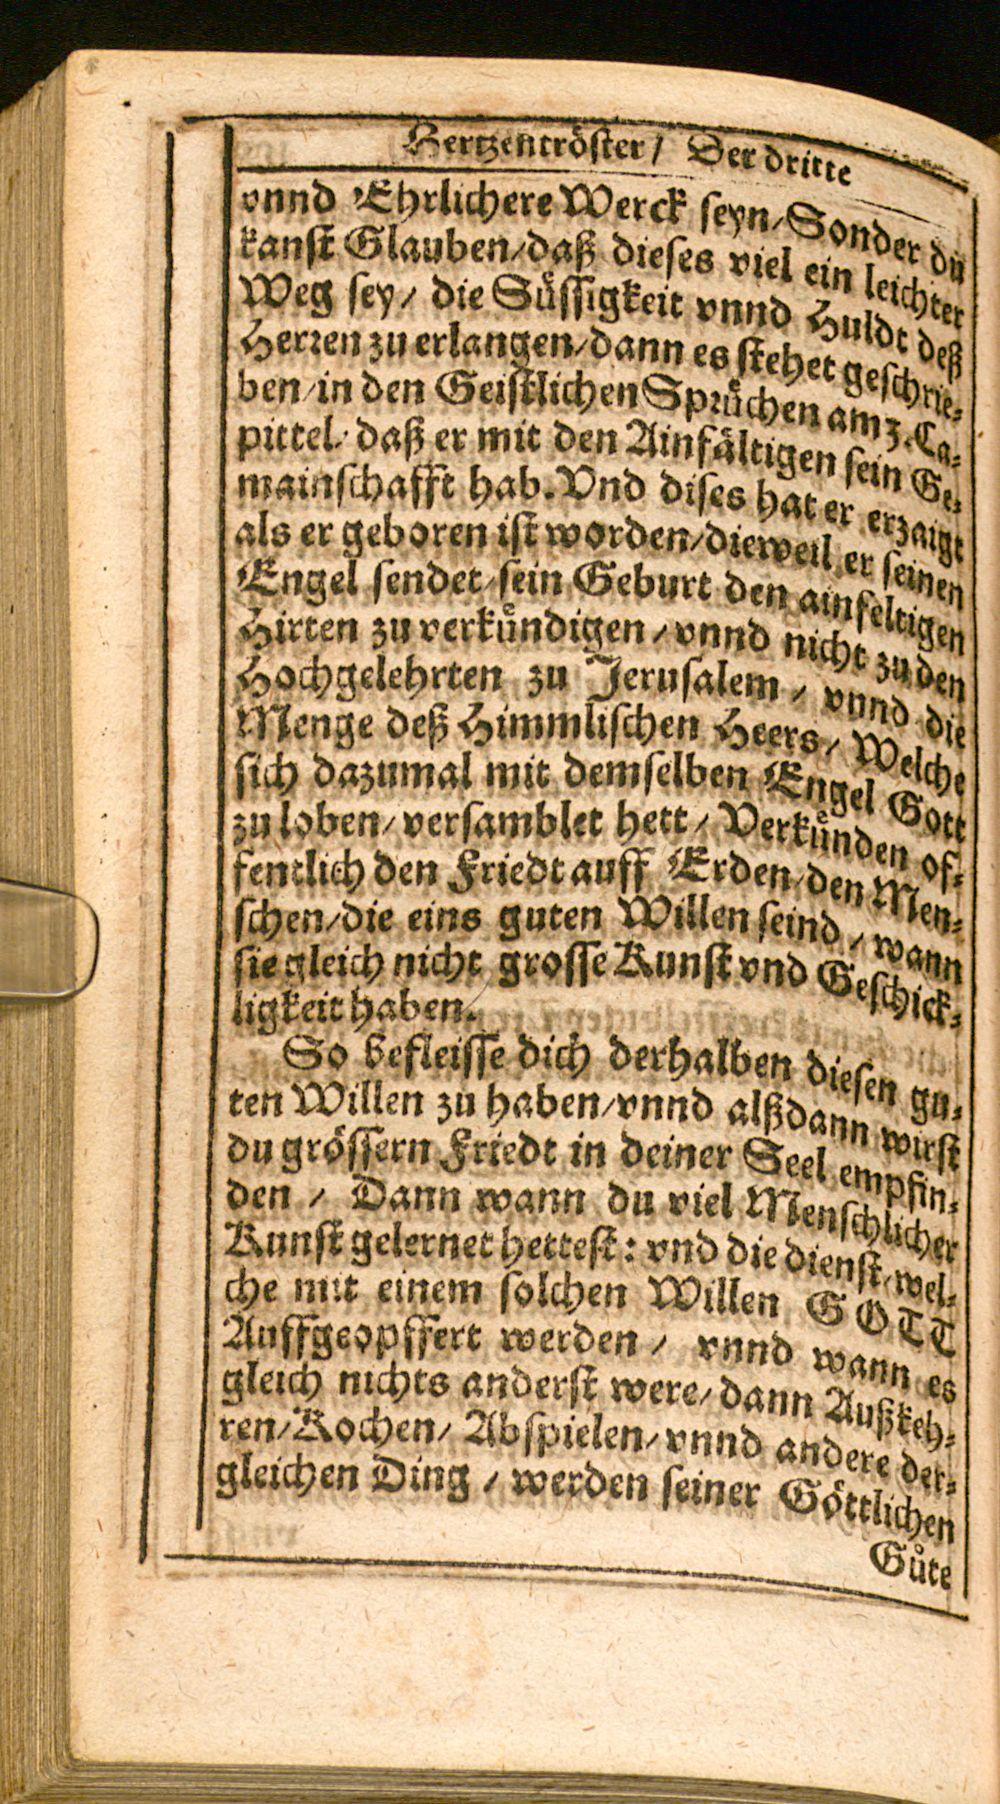 Hertzentröster / Der dritte
vnnd Ehrlichere Werck seyn / Sonder du
kanst Glauben / daß dieses viel ein leichter
Weg sey / die Süssigkeit vnnd Huldt deß
Herren zu erlangen / dann es stehet geschrie-
ben / in den Geistlichen Sprüchen am 3. Ca-
pittel / daß er mit den Ainfältigen sein Ge-
mainschafft hab. Vnd dises hat er erzaigt
als er geboren ist worden / dieweil er seinen
Engel sendet / sein Geburt den ainfeltigen
Hirten zu verkündigen / vnnd nicht zu den
Hochgelehrten zu Jerusalem / vnnd die
Menge deß Himmlischen Heers / Welche
sich dazumal mit demselben Engel Gott
zu loben / versamblet hett / Verkünden of-
fentlich den Friedt auff Erden / den Men-
schen / die eins guten Willen seind / wann
sie gleich nicht grosse Kunst vnd Geschick-
ligkeit haben.
So befleisse dich derhalben diesen gu-
ten Willen zu haben / vnnd alßdann wirst
du grössern Friedt in deiner Seel empfin-
den / Dann wann du viel Menschlicher
Kunst gelernet hettest : vnd die dienst / wel-
che mit einem solchen Willen GOTT
Auffgeopffert werden / vnnd wann es
gleich nichts anderst were / dann Außkeh-
ren / Kochen / Abspielen / vnnd andere der-
gleichen Ding / werden seiner Göttlichen
Güte